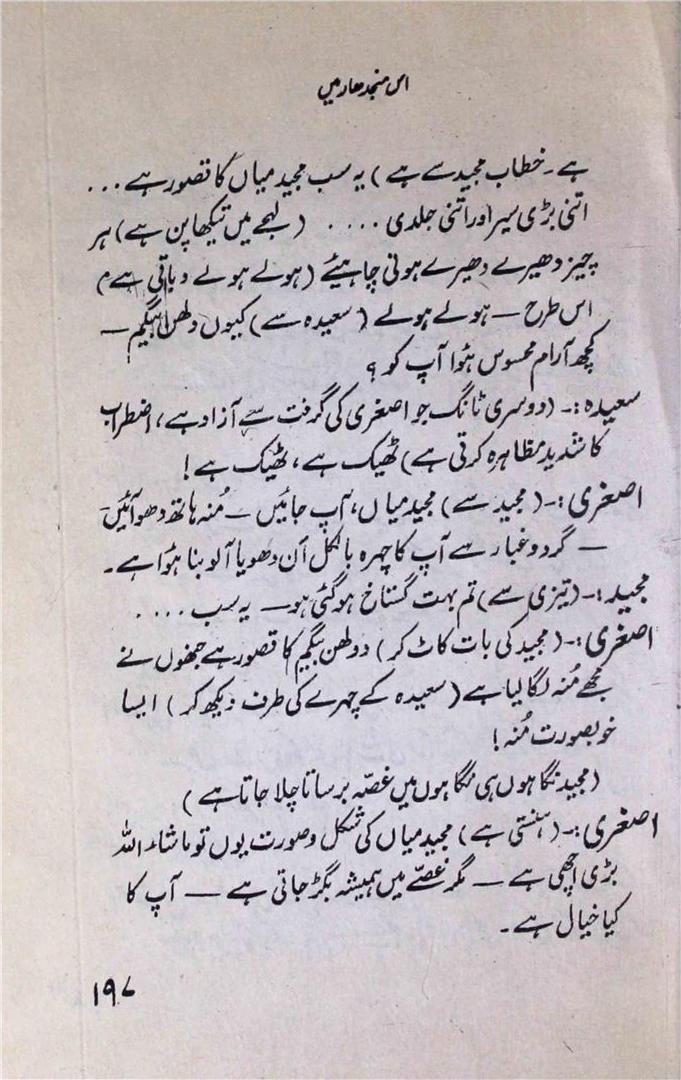 اس منجدھار میں
ہے۔ خطاب مجید سے ہے) یہ سب مجید میاں کا قصور ہے ...
اتنی بڑی سیر اور اتنی جلدی .... (لہجے میں تیکھا پن ہے) ہر
چیز دھیرے دھیرے ہونی چاہیئے (ہولے ہولے دباتی ہے)
اس طرح — ہولے ہولے (سعیدہ سے) کیوں دلھن بیگم —
کچھ آرام محسوس ہُوا آپ کو؟
سعیدہ :- (دوسری ٹانگ جو اصغری کی گرفت سے آزاد ہے، اضطراب
کا شدید مظاہرہ کرتی ہے) ٹھیک ہے، ٹھیک ہے!
اصغری :- (مجید سے) مجید میاں، آپ جائیں — مُنہ ہاتھ دھو آئیں
— گرد و غبار سے آپ کا چہرہ بالکل اَن دھویا آلو بنا ہُوا ہے۔
مجید :- (تیزی سے) تم بہت گستاخ ہو گئی ہو — یہ سب ....
اصغری :- (مجید کی بات کاٹ کر) دولھن بیگم کا قصور ہے جنھوں نے
مجھے مُنہ لگا لیا ہے (سعیدہ کے چہرے کی طرف دیکھ کر) ایسا
خوبصورت مُنہ!
(مجید نگاہوں ہی نگاہوں میں غصّہ برساتا چلا جاتا ہے)
اصغری :- (ہنستی ہے) مجید میاں کی شکل و صورت یوں تو ماشاء اللہ
بڑی اچھی ہے — مگر غصّے میں ہمیشہ بگڑ جاتی ہے — آپ کا
کیا خیال ہے۔
۱۹۷